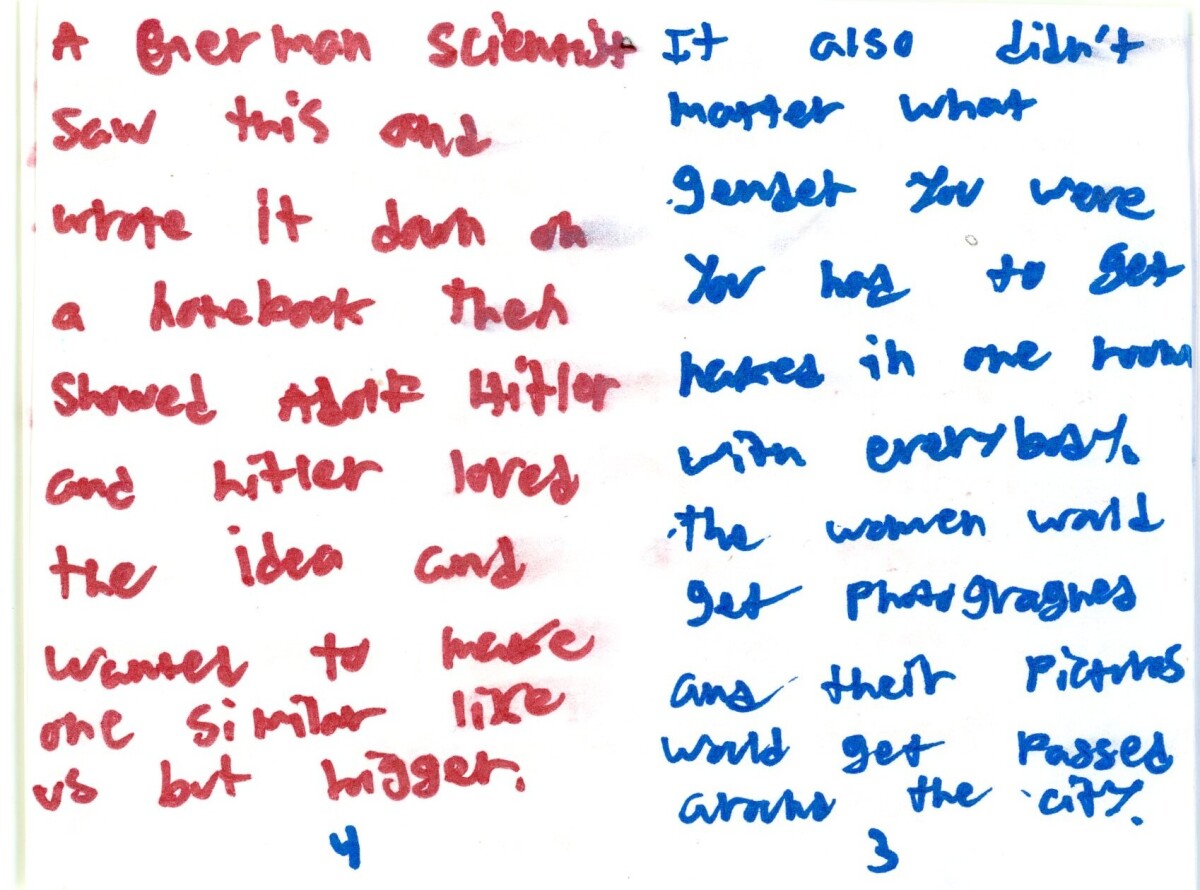 A German scientist
saw this and
wrote it down on
a notebook then
showed Adolf Hitler
and hitler loved
the idea and
wanted to make
one similar like
us but bigger.
4
It also didn't
matter what
gender You were
You had to get
naked in one room
with everybody.
the women would
get photographed
and their pictures
would get passed
around the city.
3